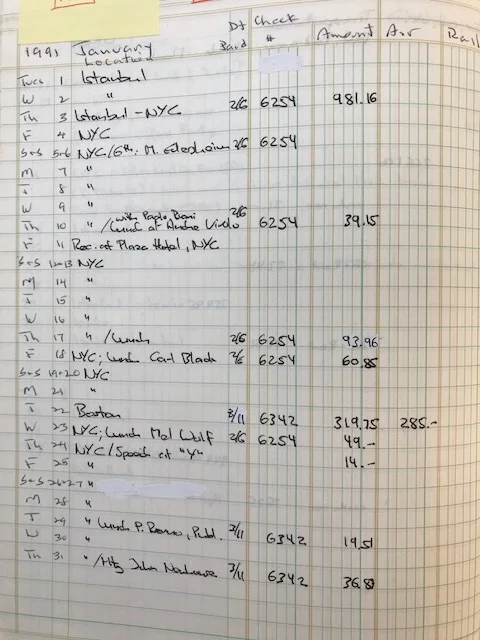 1991 January Dt Check
Location Paid # Amount Air Rail
Tues 1 Istanbul
W 2 " 2/6 6254 981.16
Th 3 Istanbul - NYC
F 4 NYC
S+S 5-6 NYC/6th. M. 2/6 6254
M 7 "
T 8 "
W 9 "
with Paolo
Th 10 " /Lunch at Andre 2/6 6254 39.15
F 11 Rec. at Plaza Hotel, NYC
S+S 12-13 NYC
M 14 "
T 15 "
W 16 "
Th 17 " /Lunch 2/6 6254 93.96
F 18 NYC; Lunch Carl Black 2/6 6254 60.85
S+S 19-20 NYC
M 21 "
T 22 Boston 3/11 6342 319.75 285.-
W 23 NYC; Lunch Mel Wulf 2/6 6254 49.-
Th 24 NYC/Speech at "Y" 14.-
F 25 "
S+S 26-27 "
M 28 "
T 29 " Lunch P. Publ. 3/11 6342 19.51
W 30 "
Th 31 " /Mtg John 3/11 6342 36.89